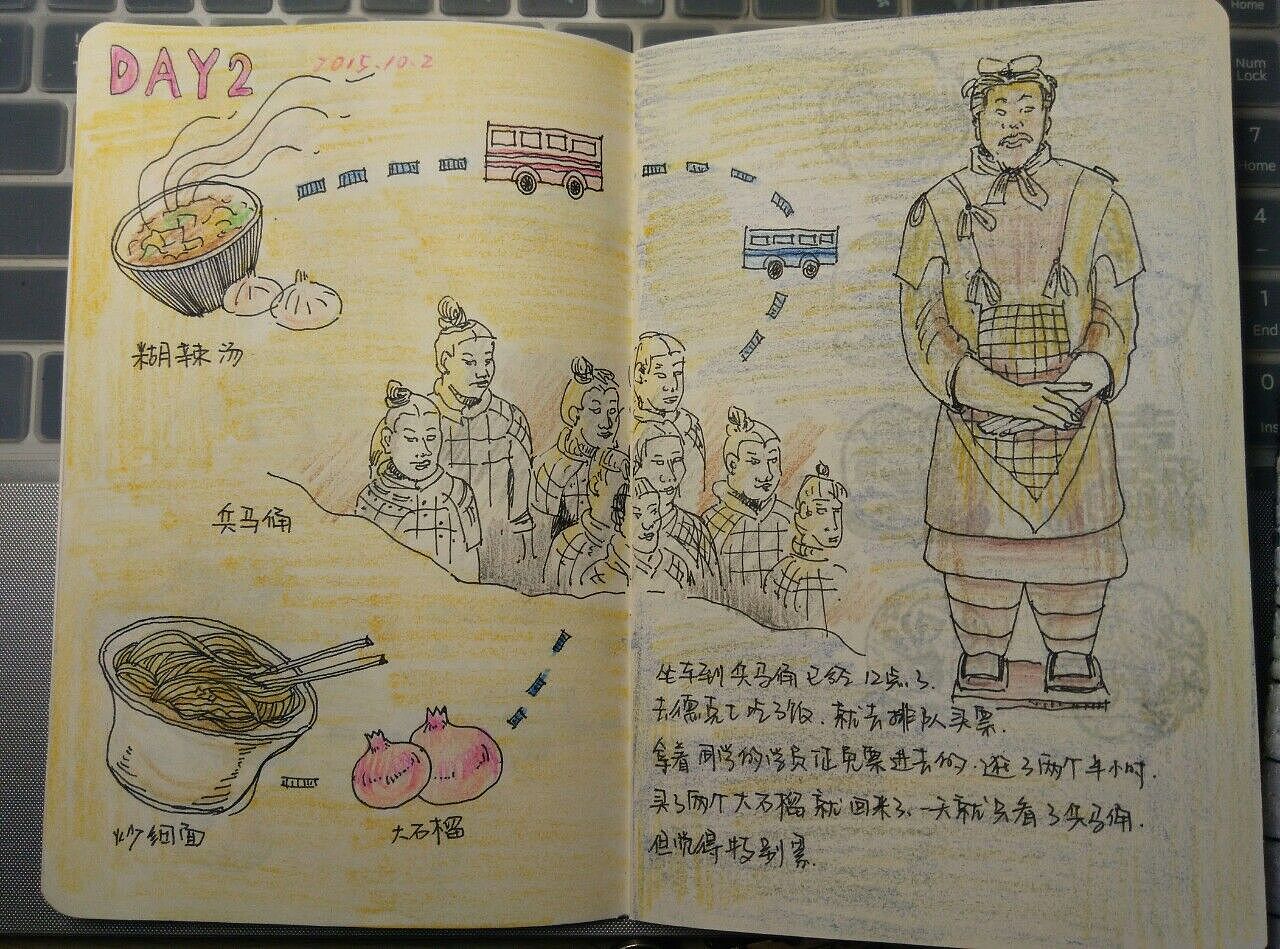 DAY2
2015.10.2
糊辣汤
兵马俑
炒细面
大石榴
坐车到兵马俑已经12点了.
去德克士吃了饭.就去排队买票.
拿着同学的学员证免票进去的.逛了两个半小时.
买了两个大石榴就回来了.一天就只看了兵马俑.
但觉得特别累.
Home
Num
Lock
7
Home
4
1
End
0
Ins